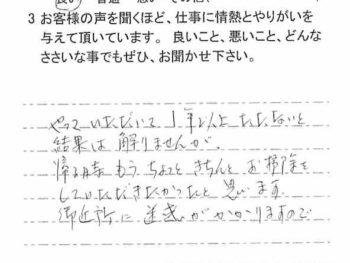 良い
3 お客様の声を聞くほど、仕事に情熱とやりがいを
与えて頂いています。 良いこと、悪いこと、どんな
ささいな事でもぜひ、お聞かせ下さい。
やっていただいて 1年以上たたないと
結果は解りませんが、
帰る時 もう ちょっと きちんと お掃除を
していただきたかったと 思います。
御近所に 迷惑がかかりますので